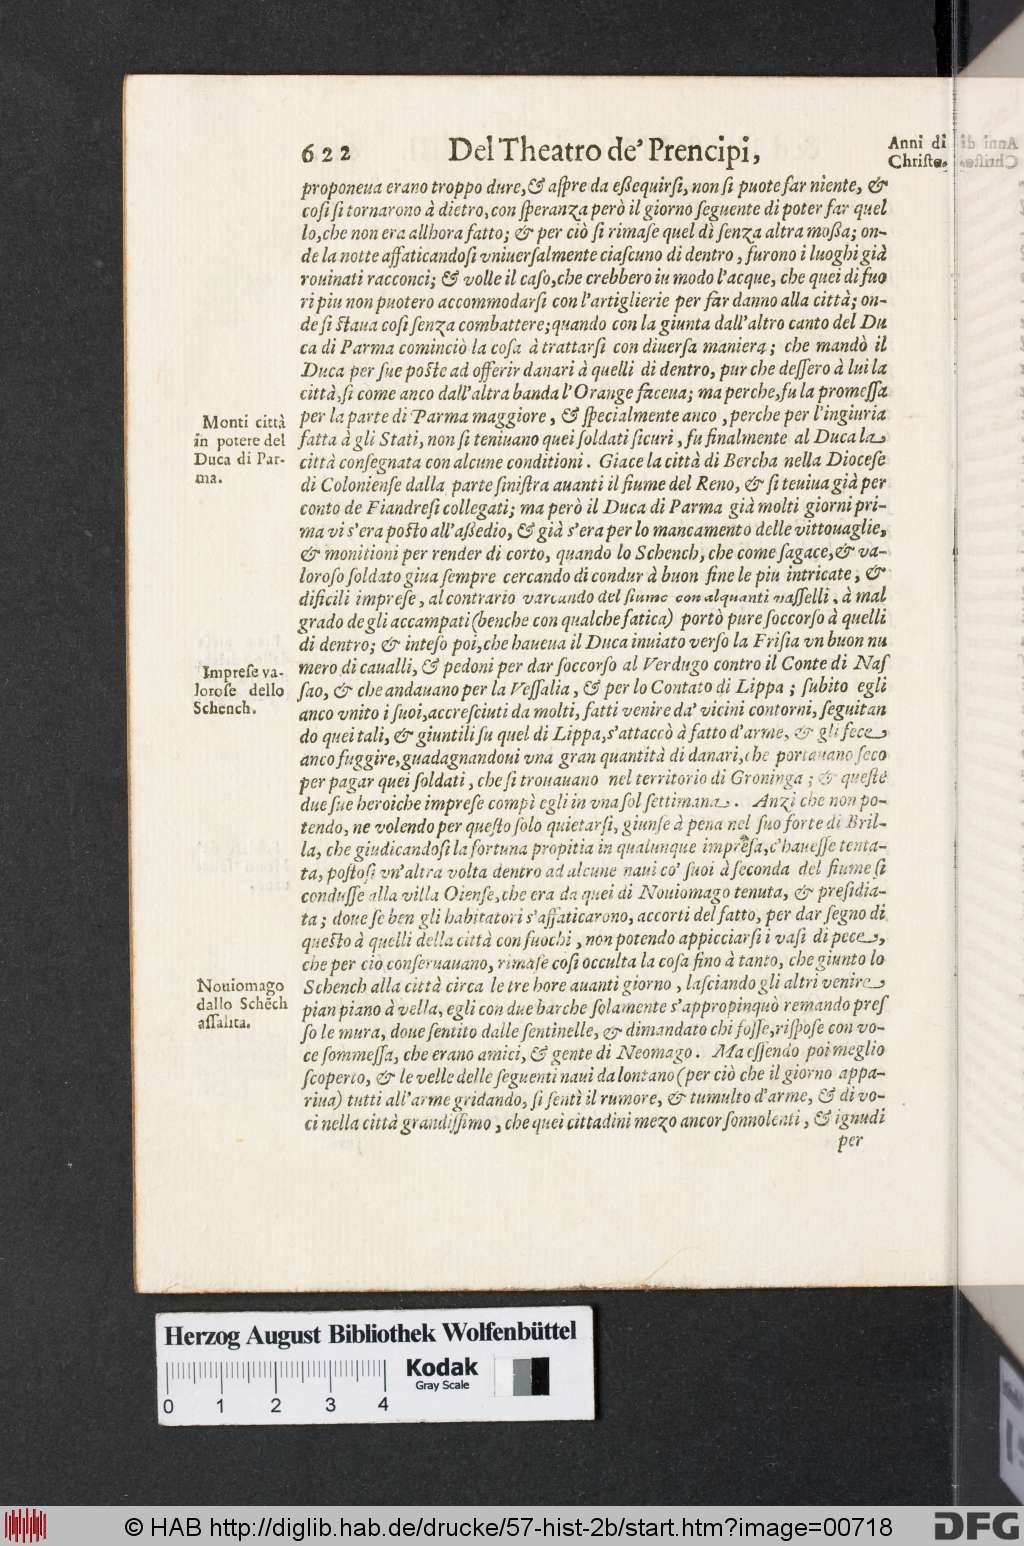 622
Del Theatro de' Prencipi,
Anni di
Christo.
proponeua erano troppo dure,& aſpre da eßequirſi, non ſi puote far niente, &
coſi ſi tornarono à dietro, con ſperanza però il giorno ſeguente di poter far quel
lo, che non era allhora fatto; & per ciò ſi rimaſe quel dì ſenza altra moßa; on-
de la notte affaticandoſi vniuerſalmente ciaſcuno di dentro, furono i luoghi già
rouinati racconci; & volle il caſo, che crebbero iu modo l'acque, che quei di fuo
ri piu non puotero accommodarſi con l'artiglierie per far danno alla città; on-
de ſi ſtaua coſi ſenza combattere; quando con la giunta dall'altro canto del Du
ca di Parma cominciò la coſa à trattarſi con diuerſa maniera; che mandò il
Duca per ſue poſte ad offerir danari à quelli di dentro, pur che deſſero à lui la
città, ſi come anco dall'altra banda l'Orange faceua; ma perche, fu la promeſſa
per la parte di Parma maggiore, & ſpecialmente anco, perche per l'ingiuria
fatta à gli Stati, non ſi teniuano quei ſoldati ſicuri, fu finalmente al Duca la
città conſegnata con alcune conditioni. Giace la città di Bercha nella Dioceſe
di Colonienſe dalla parte ſiniſtra auanti il fiume del Reno, & ſi teuiua già per
conto de Fiandreſi collegati; ma però il Duca di Parma già molti giorni pri-
ma vi s'era poſto all'aßedio, & già s'era per lo mancamento delle vittouaglie,
& monitioni per render di corto, quando lo Schench, che come ſagace, & va-
loroſo ſoldato giua ſempre cercando di condur à buon fine le piu intricate, &
dificili impreſe, al contrario varcando del fiume con alquanti vaſſelli, à mal
grado de gli accampati (benche con qualche fatica) portò pure ſoccorſo à quelli
di dentro; & inteſo poi, che haueua il Duca inuiato verſo la Friſia vn buon nu
mero di caualli, & pedoni per dar ſoccorſo al Verdugo contro il Conte di Naſ
ſao, & che andauano per la Veſſalia, & per lo Contato di Lippa; ſubito egli
anco vnito i ſuoi, accreſciuti da molti, fatti venire da' vicini contorni, ſeguitan
do quei tali, & giuntili ſu quel di Lippa, s'attaccò à fatto d'arme, & gli fece
anco fuggire, guadagnandoui vna gran quantità di danari, che portauano ſeco
per pagar quei ſoldati, che ſi trouauano nel territorio di Groninga; & queſte
due ſue heroiche impreſe compì egli in vna ſol ſettimana. Anzi che non po-
tendo, ne volendo per queſto ſolo quietarſi, giunſe à pena nel ſuo forte di Bril-
la, che giudicandoſi la fortuna propitia in qualunque impreſa, c'haueſſe tenta-
ta, poſtoſi vn'altra volta dentro ad alcune naui co' ſuoi à ſeconda del fiume ſi
conduſſe alla villa Oienſe, che era da quei di Nouiomago tenuta, & preſidia-
ta; doue ſe ben gli habitatori s'affaticarono, accorti del fatto, per dar ſegno di
queſto à quelli della città con fuochi, non potendo appicciarſi i vaſi di pece,
che per ciò conſeruauano, rimaſe coſi occulta la coſa fino à tanto, che giunto lo
Schench alla città circa le tre hore auanti giorno, laſciando gli altri venire
pian piano à vella, egli con due barche ſolamente s'appropinquò remando preſ
ſo le mura, doue ſentito dalle ſentinelle, & dimandato chi foſſe, riſpoſe con vo-
ce ſommeſſa, che erano amici, & gente di Neomago. Ma eſſendo poi meglio
ſcoperto, & le velle delle ſeguenti naui da lontano (per ciò che il giorno appa-
riua) tutti all'arme gridando, ſi ſentì il rumore, & tumulto d'arme, & di vo-
ci nella città grandiſſimo, che quei cittadini mezo ancor ſonnolenti, & ignudi
per
Monti città
in potere del
Duca di Par-
ma.
Impreſe va-
loroſe dello
Schench.
Nouiomago
dallo Schẽch
aſſalita.
Herzog August Bibliothek Wolfenbüttel
Kodak
Gray Scale
0 1 2 3 4
© HAB http://diglib.hab.de/drucke/57-hist-2b/start.htm?image=00718
DFG